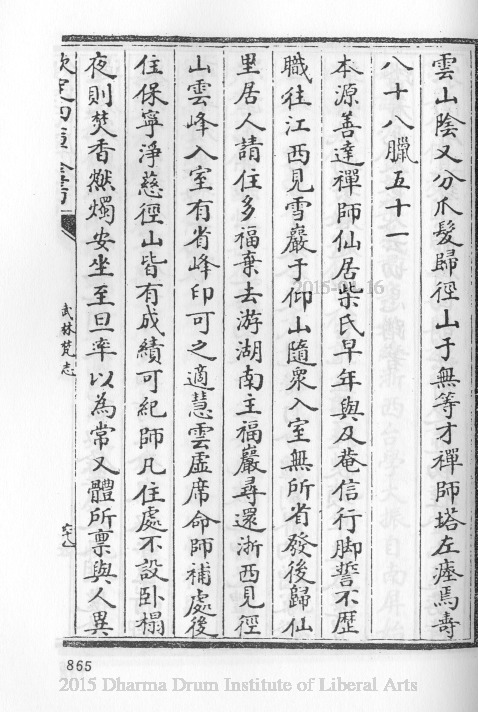 雲山陰又分爪髮歸徑山于無等才禪師塔左瘞焉壽
八十八臘五十一
本源善達禪師仙居柴氏早年與及菴信行脚誓不歷
職往江西見雪巖于仰山隨衆入室無所省發後歸仙
里居人請住多福棄去游湖南主福巖尋還浙西見徑
山雲峰入室有省峰印可之適慧雲虛席命師補處後
住保寧淨慈徑山皆有成績可紀師凡住處不設卧榻
夜則焚香燃燭安坐至旦率以為常又體所禀與人異
欽定四庫全書
武林梵志
865
2015-04-16
2015 Dharma Drum Institute of Liberal Arts